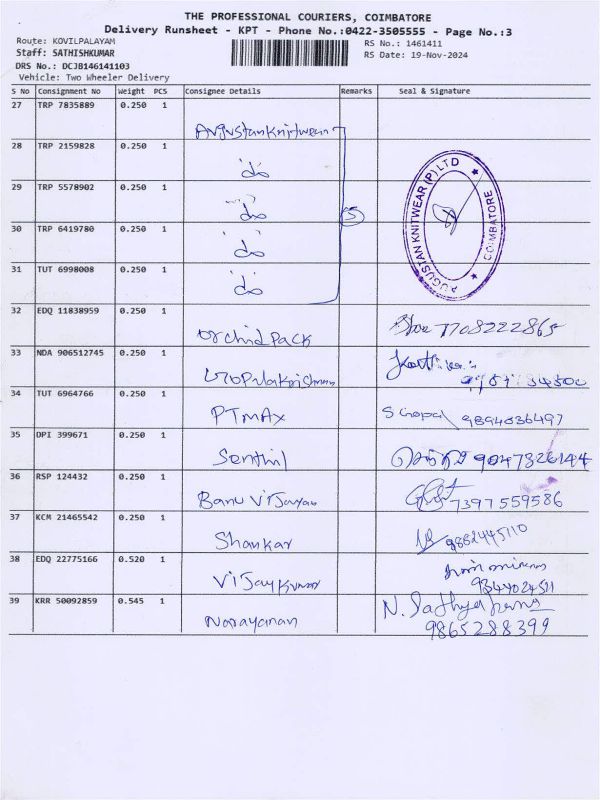 THE PROFESSIONAL COURIERS, COIMBATORE
Delivery Runsheet - KPT - Phone No.:0422-3505555 - Page No.:3
Route: KOVILPALAYAM RS No.: 1461411
Staff: SATHISHKUMAR RS Date: 19-Nov-2024
DRS No.: DCJB146141103
Vehicle: Two Wheeler Delivery
S No Consignment No Weight PCS Consignee Details Remarks Seal & Signature
27 TRP 7835889 0.250 1
Augustan Knitwear
28 TRP 2159828 0.250 1
do
29 TRP 5578902 0.250 1
do 5
30 TRP 6419780 0.250 1
do
31 TUT 6998008 0.250 1
do
AUGUSTAN KNITWEAR (P) LTD ★ COIMBATORE ★
32 EDQ 11838959 0.250 1
Orchid Pack 7708222865
33 NDA 906512745 0.250 1
Gopalakrishnan
34 TUT 6964766 0.250 1
PTMAX S Gopal 9894036497
35 DPI 399671 0.250 1
Senthil 9047326144
36 RSP 124432 0.250 1
Banu Vijayan 7397559586
37 KCM 21465542 0.250 1
Shankar 9852445110
38 EDQ 22775166 0.520 1
Vijaykumar 9344024511
39 KRR 50092859 0.545 1
Narayanan N. Sathya
9865288399